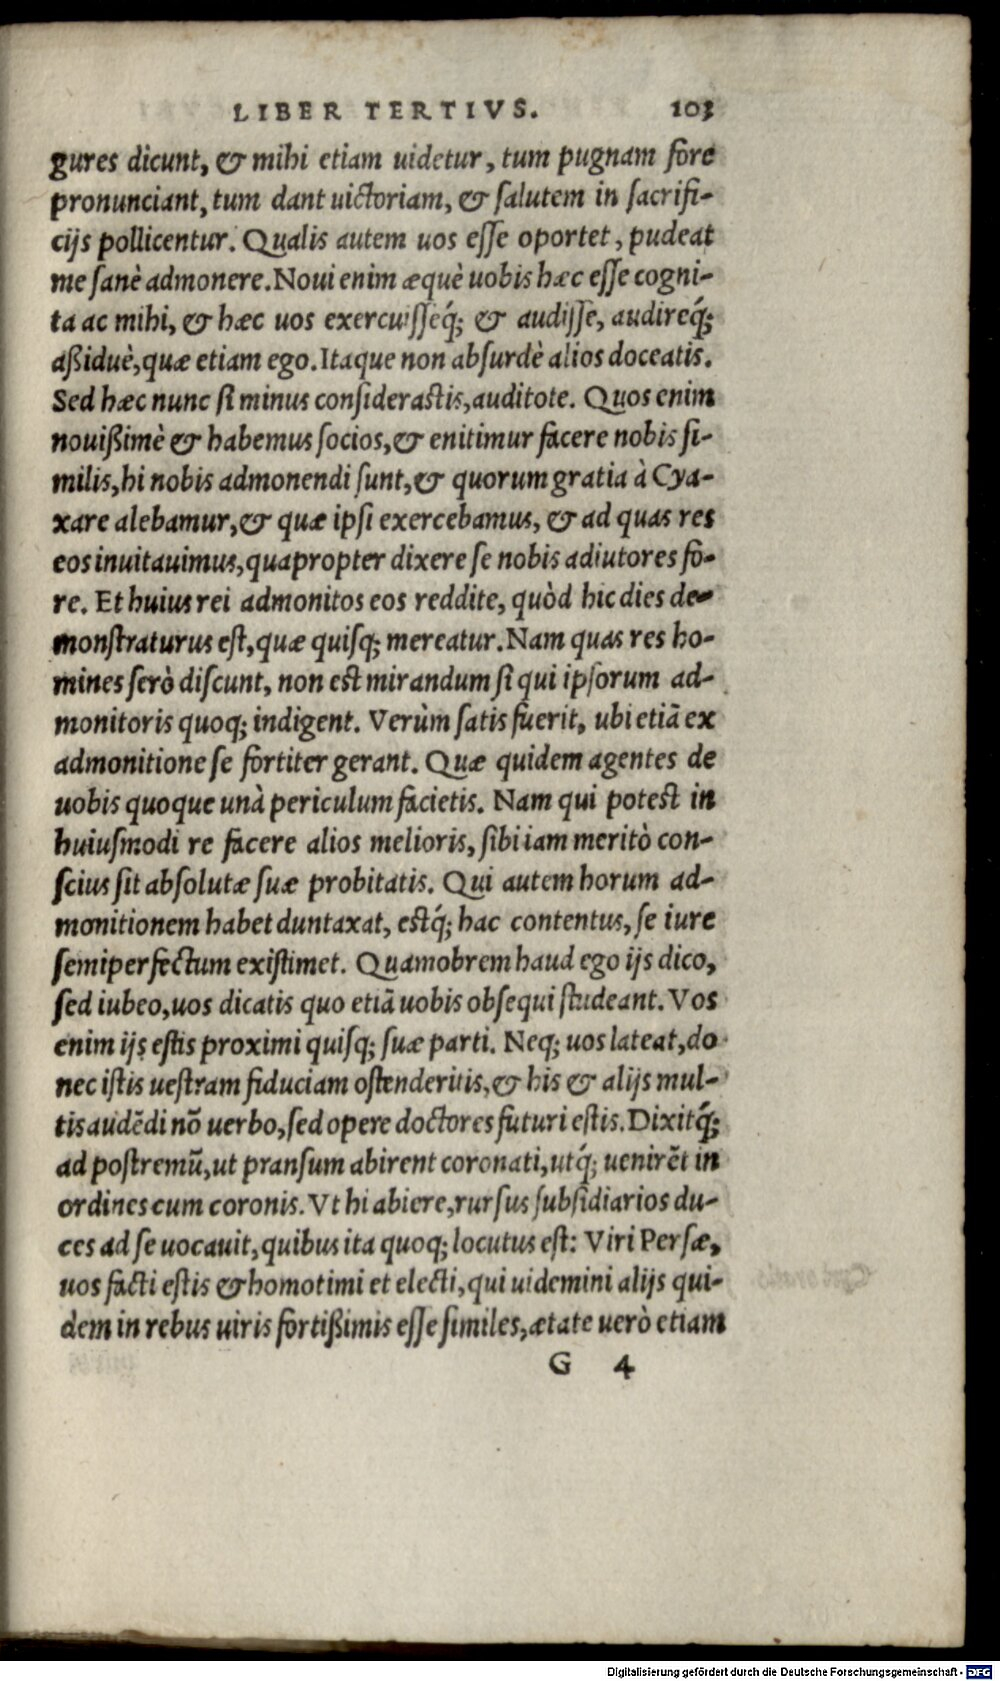 LIBER TERTIVS. 103
gures dicunt, & mihi etiam uidetur, tum pugnam fore
pronunciant, tum dant uictoriam, & ſalutem in ſacrifi-
cijs pollicentur. Qualis autem uos eſſe oportet, pudeat
me ſanè admonere. Noui enim æquè uobis hæc eſſe cogni-
ta ac mihi, & hæc uos exercuiſſeq́; & audiſſe, audireq́;
aßiduè, quæ etiam ego. Itaque non abſurdè alios doceatis.
Sed hæc nunc ſi minus conſideraſtis, auditote. Quos enim
nouißimè & habemus ſocios, & enitimur facere nobis ſi-
milis, hi nobis admonendi ſunt, & quorum gratia à Cya-
xare alebamur, & quæ ipſi exercebamus, & ad quas res
eos inuitauimus, quapropter dixere ſe nobis adiutores fo-
re. Et huius rei admonitos eos reddite, quòd hic dies de-
monſtraturus eſt, quæ quiſq; mereatur. Nam quas res ho-
mines ſerò diſcunt, non eſt mirandum ſi qui ipſorum ad-
monitoris quoq; indigent. Verùm ſatis fuerit, ubi etiā ex
admonitione ſe fortiter gerant. Quæ quidem agentes de
uobis quoque unà periculum facietis. Nam qui poteſt in
huiuſmodi re facere alios melioris, ſibi iam meritò con-
ſcius ſit abſolutæ ſuæ probitatis. Qui autem horum ad-
monitionem habet duntaxat, eſtq́; hac contentus, ſe iure
ſemiperfectum exiſtimet. Quamobrem haud ego ijs dico,
ſed iubeo, uos dicatis quo etiā uobis obſequi ſtudeant. Vos
enim ijs eſtis proximi quiſq; ſuæ parti. Neq; uos lateat, do
nec iſtis ueſtram fiduciam oſtenderitis, & his & alijs mul-
tis audēdi nō uerbo, ſed opere doctores futuri eſtis. Dixitq́;
ad poſtremū, ut pranſum abirent coronati, utq́; uenirēt in
ordines cum coronis. Vt hi abiere, rurſus ſubſidiarios du-
ces ad ſe uocauit, quibus ita quoq; locutus eſt: Viri Perſæ,
uos facti eſtis & homotimi et electi, qui uidemini alijs qui-
dem in rebus uiris fortißimis eſſe ſimiles, ætate uerò etiam
G 4
Digitalisierung gefördert durch die Deutsche Forschungsgemeinschaft - DFG